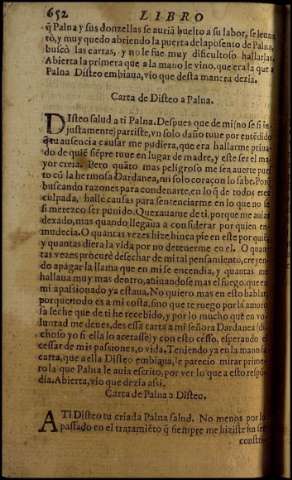 652 LIBRO
q̃ Palna y sus donzellas se auriã buelto a su labor, se leuan
tò, y muy quedo abriendo la puerta del aposento de Palna,
buscò las cartas, y no le fue muy dificultoso hallarlas.
Abierta la primera que a la mano le vino, que era la que a
Palna Disteo embiaua, vio que desta manera dezia.
Carta de Disteo a Palna.
DIsteo salud a ti Palna. Despues que de mi no se si in
justamente) partiste, vn solo daño tuue por entẽdido
tu ausencia causar me pudiera, que era hallarme priua
do de quiẽ siẽpre tuue en lugar de madre, y este ser el ma
yor creîa. Pero quãto mas peligroso me sea, auerte puesto
to cõ la hermosa Dardanea, mi solo coraçon lo sabe. Por
buscando razones para condenarte, en lo q̃ de todo eres
culpada, hallè causas para sentenciarme en lo que no se
si merezco ser punido. Quexauame de ti, porque me auias
dexado, mas quando llegaua a considerar por quien en
mudecia. O quantas vezes hize hinca pie en este porque,
y quantas diera la vida por no detenerme en el. O quan
tas vezes procurè desechar de mi tal pensamiento, creyen
do apagar la llama que en mi se encendia, y quantas me
hallaua muy mas dentro, atiuandose mas el fuego, que en
mi apassionado ya estaua. No quiero mas en esto hablar,
porque todo es a mi costa, sino que te ruego por la amoro
sa leche que de ti he recebido, y por lo mucho que en vo
luntad me deues, des essa carta a mi señora Dardanea (di
choso yo si ella lo acetasse) y con esto cesso, esperando el
cessar de mis passiones, o vida. Teniendo ya en la mano la
carta, que a ella Disteo embiaua, le parecio mirar prime
ro la que Palna le auia escrito, por ver lo que a esto respõ
dia. Abierta, vio que dezia assi.
Carta de Palna a Disteo.
A TI Disteo tu criada Palna salud. No menos por lo
passado en el tratamiẽto q̃ siempre me hiziste ha ser